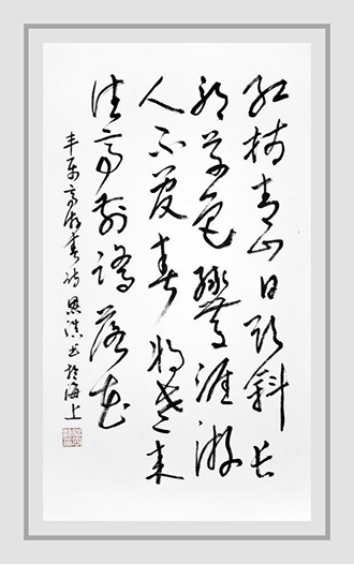 红树青山日欲斜长
郊草色绿无涯游
人不管春将老来
往亭前踏落花
丰乐亭游春诗 恩 书于海上